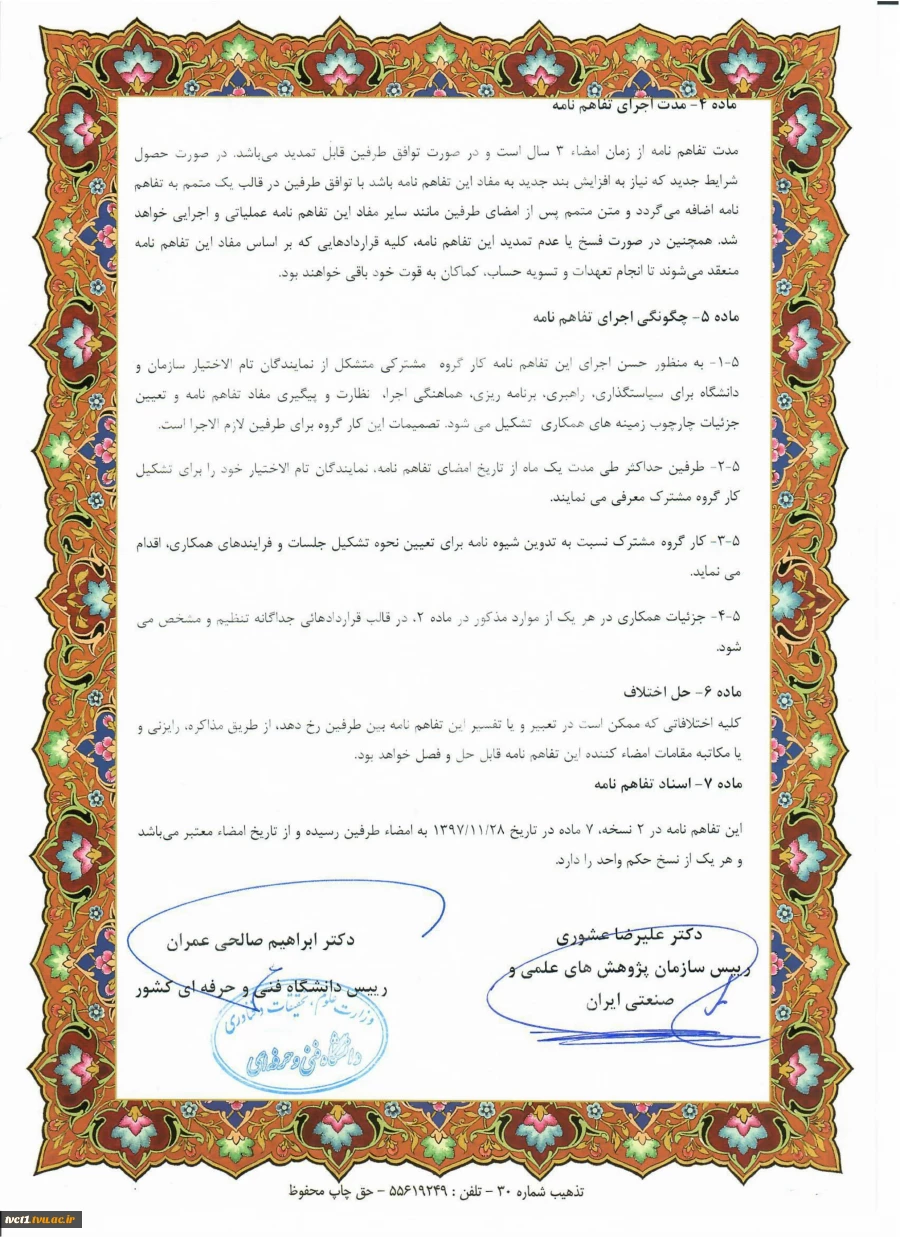 ماده ۴- مدت اجرای تفاهم نامه
مدت تفاهم نامه از زمان امضاء ۳ سال است و در صورت توافق طرفین قابل تمدید می‌باشد. در صورت حصول
شرایط جدید که نیاز به افزایش بند جدید به مفاد این تفاهم نامه باشد با توافق طرفین در قالب یک متمم به تفاهم
نامه اضافه می‌گردد و متن متمم پس از امضای طرفین مانند سایر مفاد این تفاهم نامه عملیاتی و اجرایی خواهد
شد. همچنین در صورت فسخ یا عدم تمدید این تفاهم نامه، کلیه قراردادهایی که بر اساس مفاد این تفاهم نامه
منعقد می‌شوند تا انجام تعهدات و تسویه حساب، کماکان به قوت خود باقی خواهند بود.
ماده ۵- چگونگی اجرای تفاهم نامه
۵-۱- به منظور حسن اجرای این تفاهم نامه کار گروه مشترکی متشکل از نمایندگان تام الاختیار سازمان و
دانشگاه برای سیاستگذاری، راهبری، برنامه ریزی، هماهنگی اجرا، نظارت و پیگیری مفاد تفاهم نامه و تعیین
جزئیات چارچوب زمینه های همکاری تشکیل می شود. تصمیمات این کار گروه برای طرفین لازم الاجرا است.
۵-۲- طرفین حداکثر طی مدت یک ماه از تاریخ امضای تفاهم نامه، نمایندگان تام الاختیار خود را برای تشکیل
کار گروه مشترک معرفی می نمایند.
۵-۳- کار گروه مشترک نسبت به تدوین شیوه نامه برای تعیین نحوه تشکیل جلسات و فرایندهای همکاری، اقدام
می نماید.
۵-۴- جزئیات همکاری در هر یک از موارد مذکور در ماده ۲، در قالب قراردادهائی جداگانه تنظیم و مشخص می
شود.
ماده ۶- حل اختلاف
کلیه اختلافاتی که ممکن است در تعبیر و یا تفسیر این تفاهم نامه بین طرفین رخ دهد، از طریق مذاکره، رایزنی و
یا مکاتبه مقامات امضاء کننده این تفاهم نامه قابل حل و فصل خواهد بود.
ماده ۷- اسناد تفاهم نامه
این تفاهم نامه در ۲ نسخه، ۷ ماده در تاریخ ۱۳۹۷/۱۱/۲۸ به امضاء طرفین رسیده و از تاریخ امضاء معتبر می‌باشد
و هر یک از نسخ حکم واحد را دارد.
دکتر علیرضا عشوری
رییس سازمان پژوهش های علمی و
صنعتی ایران
دکتر ابراهیم صالحی عمران
رییس دانشگاه فنی و حرفه ای کشور
وزارت علوم، تحقیقات و فناوری
دانشگاه فنی و حرفه‌ای
تذهیب شماره ۳۰ - تلفن : ۵۵۶۱۹۲۴۹ - حق چاپ محفوظ
tvct1.tvu.ac.ir